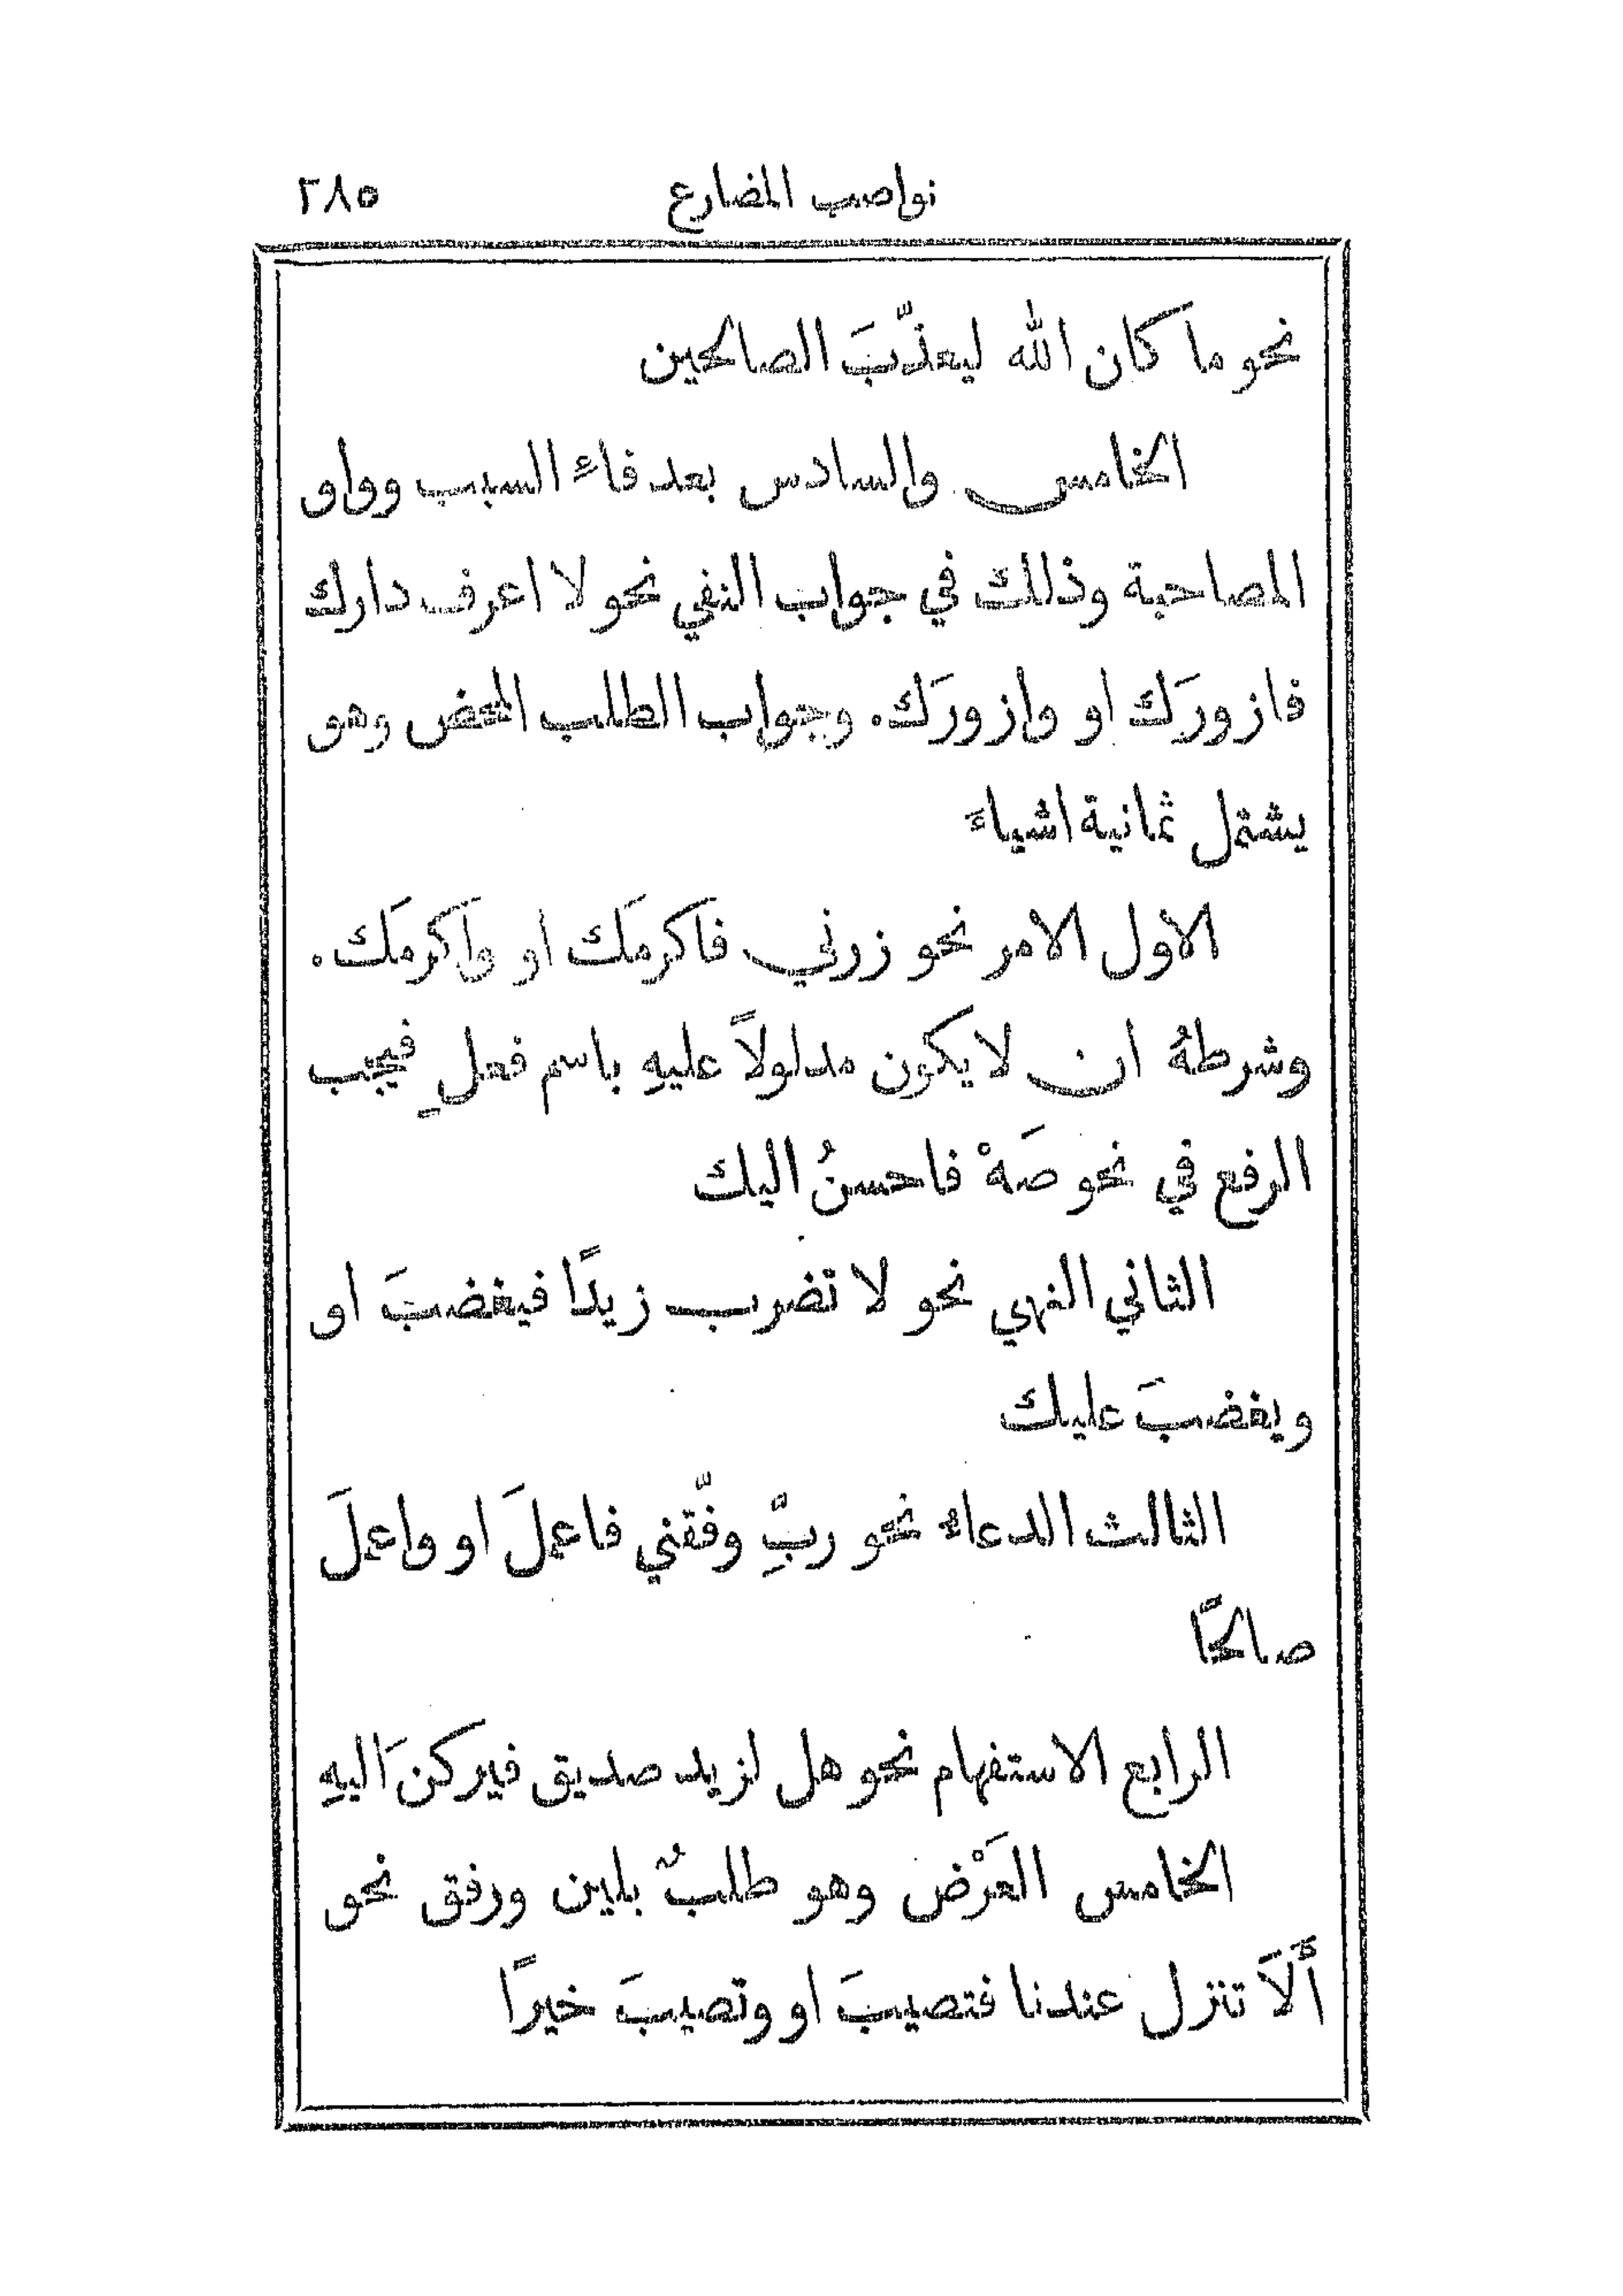 نواصب المضارع ٢٨٥
نحو ما كان الله ليعذّبَ الصالحين
الخامس والسادس بعد فاءِ السبب وواو
المصاحبة وذلك في جواب النفي نحو لا اعرف دارك
فازورَك او وازورَك. وجواب الطلب المحض وهو
يشتمل ثمانية اشياءَ
الاول الامر نحو زرني فاكرمَك او واكرمَك.
وشرطهُ ان لا يكون مدلولاً عليهِ باسم فعلٍ فيجب
الرفع في نحو صَهْ فاحسنُ اليك
الثاني النهي نحو لا تضرب زيدًا فيغضبَ او
ويغضبَ عليك
الثالث الدعاءُ نحو ربِّ وفّقني فاعملَ او واعملَ
صالحًا
الرابع الاستفهام نحو هل لزيد صديق فيركنَ اليهِ
الخامس العَرْض وهو طلبٌ بلين ورفق نحو
أَلَا تنزل عندنا فتصيبَ او وتصيبَ خيرًا